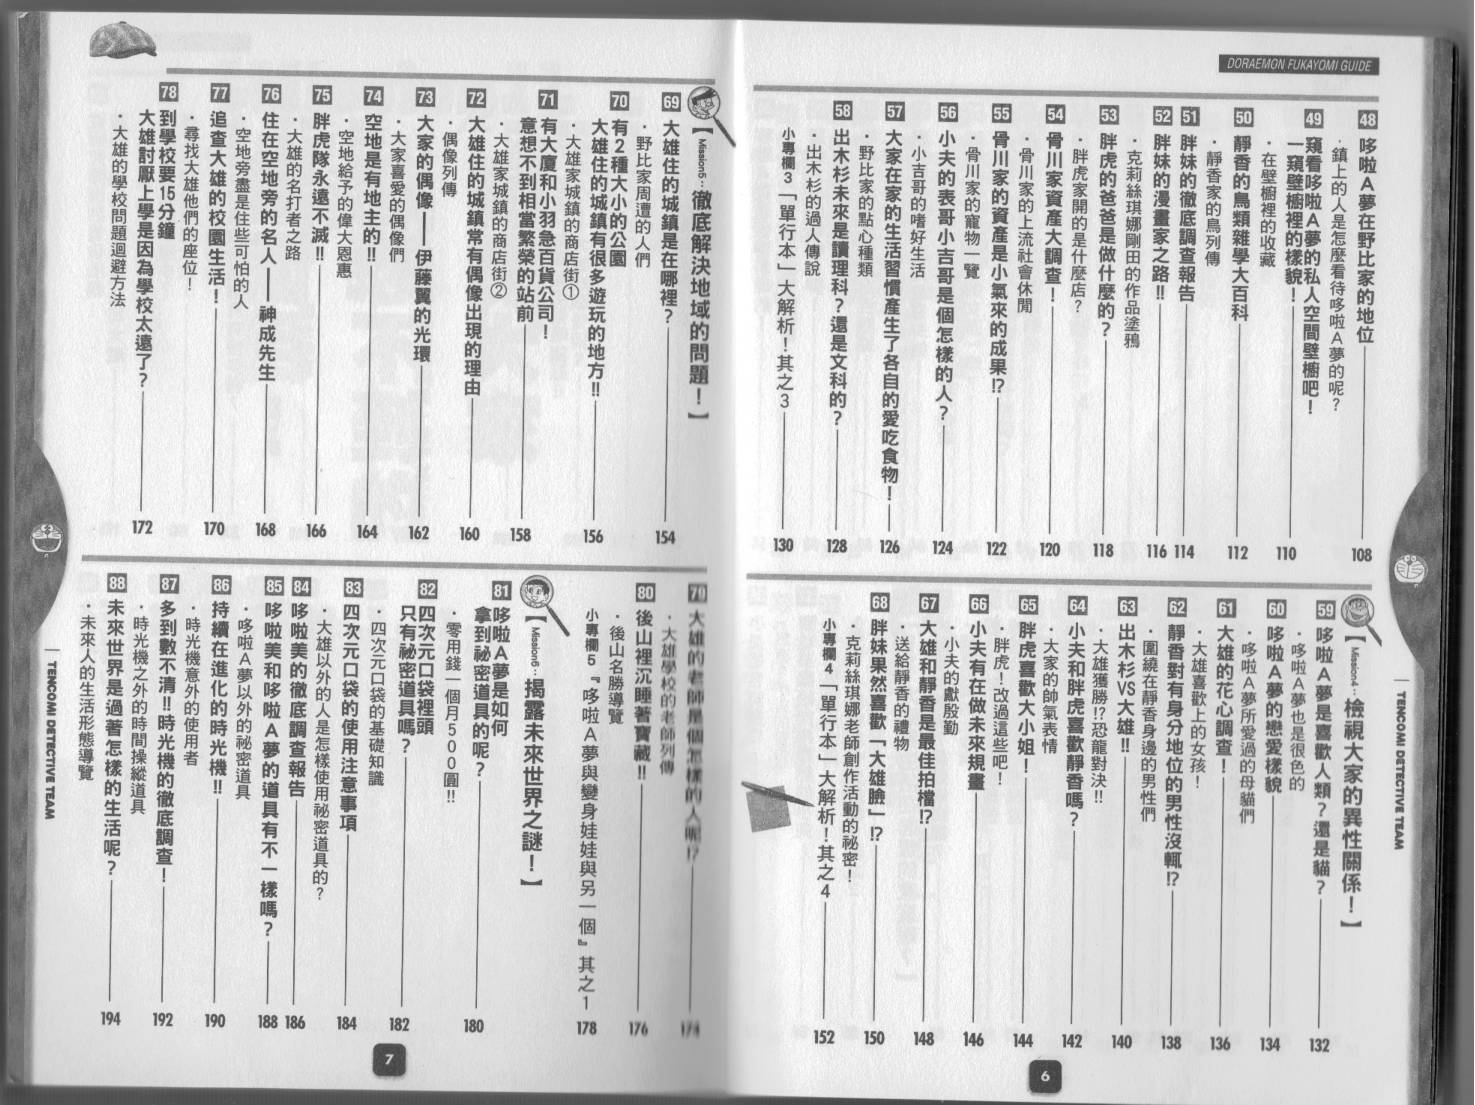 DORAEMON FUKAYOMI GUIDE
48 哆啦A夢在野比家的地位 108
・鎮上的人是怎麼看待哆啦A夢的呢？
49 窺看哆啦A夢的私人空間壁櫥吧！
一窺壁櫥裡的樣貌！ 110
・在壁櫥裡的收藏
50 靜香的鳥類雜學大百科 112
・靜香家的鳥列傳
51 胖妹的徹底調查報告 114
52 胖妹的漫畫家之路!! 116
・克莉絲琪娜剛田的作品塗鴉
53 胖虎的爸爸是做什麼的？ 118
・胖虎家開的是什麼店？
54 骨川家資產大調查！ 120
・骨川家的上流社會休閒
55 骨川家的資產是小氣來的成果!? 122
・骨川家的寵物一覽
56 小夫的表哥小吉哥是個怎樣的人？ 124
・小吉哥的嗜好生活
57 大家在家的生活習慣產生了各自的愛吃食物！ 126
・野比家的點心種類
58 出木杉未來是讀理科？還是文科的？ 128
・出木杉的過人傳說
小專欄3 「單行本」大解析！其之3 130
【Mission4：檢視大家的異性關係！】
59 哆啦A夢是喜歡人類？還是貓？ 132
・哆啦A夢也是很色的
60 哆啦A夢的戀愛樣貌 134
・哆啦A夢所愛過的母貓們
61 大雄的花心調查！ 136
・大雄喜歡上的女孩！
62 靜香對有身分地位的男性沒輒!? 138
・圍繞在靜香身邊的男性們
63 出木杉VS大雄!! 140
・大雄獲勝!?恐龍對決!!
64 小夫和胖虎喜歡靜香嗎？ 142
・大家的帥氣表情
65 胖虎喜歡大小姐！ 144
・胖虎！改過這些吧！
66 小夫有在做未來規畫 146
・小夫的獻殷勤
67 大雄和靜香是最佳拍檔!? 148
・送給靜香的禮物
68 胖妹果然喜歡「大雄臉」!? 150
・克莉絲琪娜老師創作活動的祕密！
小專欄4 「單行本」大解析！其之4 152
TENCOMI DETECTIVE TEAM
6
【Mission5：徹底解決地域的問題！】
69 大雄住的城鎮是在哪裡？ 154
・野比家周遭的人們
70 有2種大小的公園
大雄住的城鎮有很多遊玩的地方!! 156
・大雄家城鎮的商店街①
71 有大廈和小羽急百貨公司！
意想不到相當繁榮的站前 158
・大雄家城鎮的商店街②
72 大雄住的城鎮常有偶像出現的理由 160
・偶像列傳
73 大家的偶像——伊藤翼的光環 162
・大家喜愛的偶像們
74 空地是有地主的!! 164
・空地給予的偉大恩惠
75 胖虎隊永遠不滅!! 166
・大雄的名打者之路
76 住在空地旁的名人——神成先生 168
・空地旁盡是住些可怕的人
77 追查大雄的校園生活！ 170
・尋找大雄他們的座位！
78 到學校要15分鐘
大雄討厭上學是因為學校太遠了？ 172
・大雄的學校問題迴避方法
79 大雄的老師是個怎樣的人呢!? 174
・大雄學校的老師列傳
80 後山裡沉睡著寶藏!! 176
・後山名勝導覽
小專欄5 『哆啦A夢與變身娃娃與另一個』其之1 178
【Mission6：揭露未來世界之謎！】
81 哆啦A夢是如何
拿到祕密道具的呢？ 180
・零用錢一個月500圓!!
82 四次元口袋裡頭
只有祕密道具嗎？ 182
・四次元口袋的基礎知識
83 四次元口袋的使用注意事項 184
・大雄以外的人是怎樣使用祕密道具的？
84 哆啦美的徹底調查報告 186
85 哆啦美和哆啦A夢的道具有不一樣嗎？ 188
・哆啦A夢以外的祕密道具
86 持續在進化的時光機!! 190
・時光機意外的使用者
87 多到數不清!!時光機的徹底調查！ 192
・時光機之外的時間操縱道具
88 未來世界是過著怎樣的生活呢？ 194
・未來人的生活形態導覽
TENCOMI DETECTIVE TEAM
7